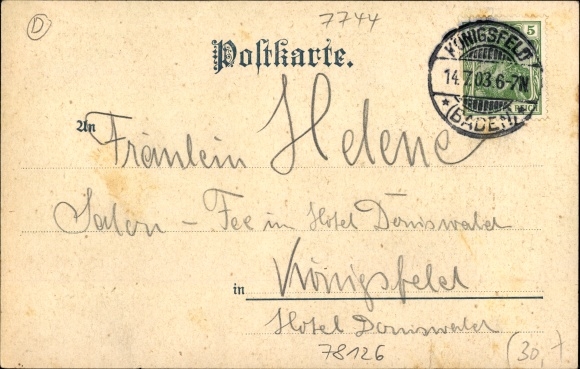 D
7744
Postkarte.
5
KÖNIGSFELD
14.7.03.6-7N
* (BADEN) *
An
Fräulein Helene
Salon - Fee im Hotel Doniswald
in Königsfeld
Hotel Doniswald
78126
(30,-